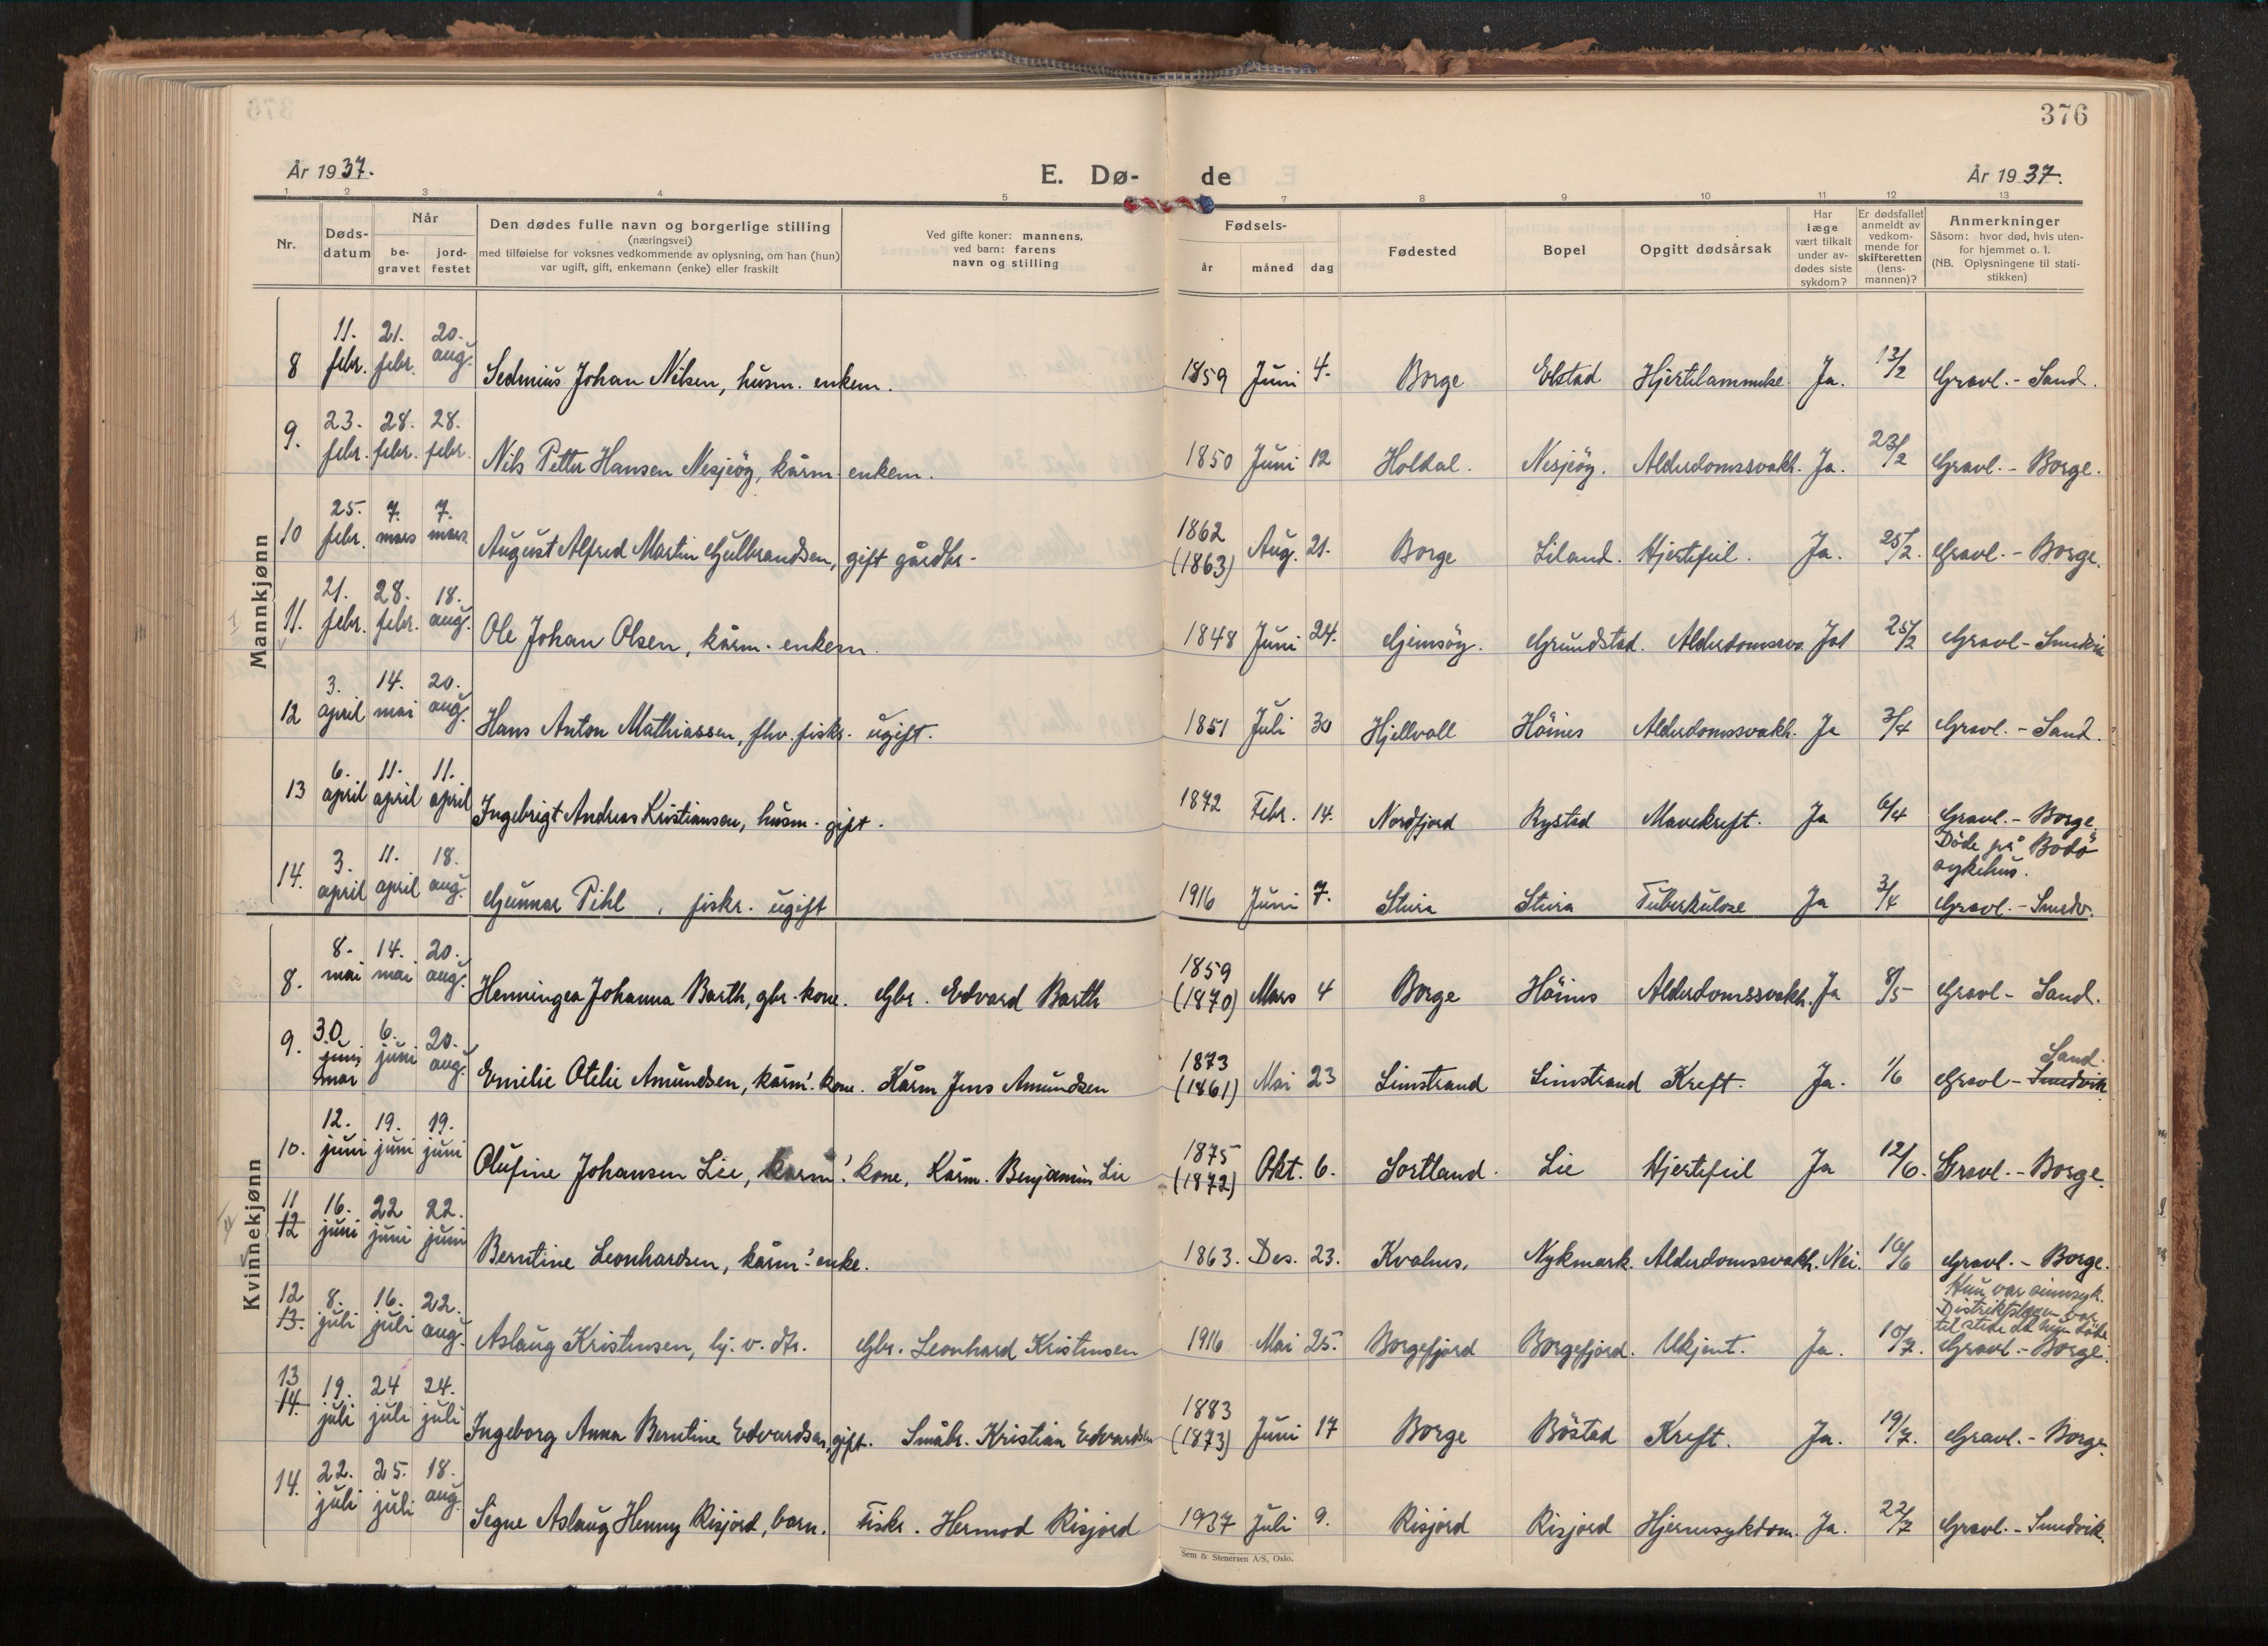 376
År 1937.
E. Dø- de
År 1937.
1 2 3 4 5 7 8 9 10 11 12 13
Nr.
Døds-
datum
Når
be-
gravet
jord-
festet
Den dødes fulle navn og borgerlige stilling
(næringsvei)
med tilføielse for voksnes vedkommende av oplysning, om han (hun)
var ugift, gift, enkemann (enke) eller fraskilt
Ved gifte koner: mannens,
ved barn: farens
navn og stilling
Fødsels-
år måned dag
Fødested
Bopel
Opgitt dødsårsak
Har
læge
vært tilkalt
under av-
dødes siste
sykdom?
Er dødsfallet
anmeldt av
vedkom-
mende for
skifteretten
(lens-
mannen)?
Anmerkninger
Såsom: hvor død, hvis uten-
for hjemmet o. l.
(NB. Oplysningene til stati-
stikken)
Mannkjønn
11. 21. 20.
8 febr. febr. aug. Sedmius Johan Nilsen, husm. enkem. 1859 Juni 4. Borge Elstad Hjertelammelse Ja. 13/2 Gravl. - Sand.
23. 28. 28.
9. febr. febr. febr. Nils Petter Hansen Nesjeöy, kårm. enkem. 1850 Juni 12 Holdal. Nesjeöy. Alderdomssvakh. Ja. 23/2 Gravl. - Borge.
25. 7. 7. 1862
10 febr. mars mars August Alfred Martin Gulbrandsen, gift gårdbr. (1863) Aug. 21. Borge Liland. Hjertefeil. Ja. 25/2. Gravl. - Borge.
21. 28. 18.
11. febr. febr. aug. Ole Johan Olsen, kårm. enkem. 1848 Juni 24. Gjemsöy. Grundstad. Alderdomssva. Ja 25/2 Gravl - Smedvik
3. 14. 20.
12 april mai aug. Hans Anton Mathiassen, fhv. fiskr. ugift. 1851 Juli 30 Hjellvoll Höines Alderdomssvakh. Ja 3/4 Gravl. - Sand.
6. 11. 11.
13 april april april Ingebrigt Andreas Kristiansen, husm. gift. 1872 Febr. 14. Nordfjord Rystad Mavekreft. Ja 6/4 Gravl. - Borge.
Döde på Bodö
sykehus.
3. 11. 18.
14. april april aug. Gunnar Pihl, fiskr. ugift 1916 Juni 7. Steira Steira Tuberkulose Ja 3/4 Gravl. - Smedv.
Kvinnekjønn
8. 14. 20. 1859
8. mai mai aug. Henningea Johanna Barth, gbr. kone. Gbr. Edvard Barth (1870) Mars 4 Borge Höines Alderdomssvakh. Ja 8/5 Gravl - Sand.
30 6. 20. 1873 Sand.
9. juni mai juni aug. Emilie Otelie Amundsen, kårm. kone. Kårm Jens Amundsen (1861) Mai 23 Limstrand Limstrand Kreft. Ja. 1/6 Gravl - Smedvik
12. 19. 19. 1875
10. juni juni juni Olufine Johansen Lie, kårm. kone, Kårm. Benjamin Lie (1872) Okt. 6. Sortland. Lie Hjertefeil Ja 12/6. Gravl. - Borge.
11 16. 22 22.
12 juni juni juni Berntine Leonhardsen, kårm. enke. 1863. Des. 23. Kvalnes, Nykmark. Alderdomssvakh. Nei. 16/6 Gravl. - Borge.
Hun var sinnsyk.
Distriktslægen var
til stede da hun döde
12 8. 16. 22.
13. juli juli aug. Aslaug Kristensen, hj. v. dtr. Gbr. Leonhard Kristensen 1916 Mai 25. Borgefjord Borgefjord. Ukjent. Ja. 10/7. Gravl. - Borge.
13 19. 24 24. 1883
14. juli juli juli Ingeborg Anna Berntine Edvardsen, gift. Småbr. Kristian Edvardsen (1873) Juni 17 Borge Böstad Kreft. Ja. 19/7. Gravl. - Borge.
22. 25. 18.
14. juli juli aug. Signe Aslaug Henny Risjord, barn. Fiskr. Hermod Risjord 1937 Juli 9. Risjord Risjord Hjernesykdom. Ja. 22/7 Gravl. - Smedvik.
Sem & Stenersen A/S, Oslo.